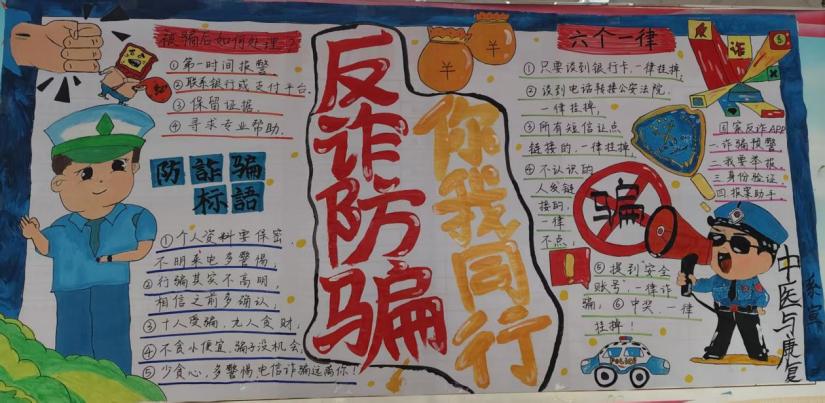 被骗后如何处理?
①第一时间报警
②联系银行或支付平台.
③保留证据.
④寻求专业帮助.
防詐騙
标語
①个人资料要保密
不明来电多警惕,
②行骗其实不高明,
相信之前多确认,
③十人受骗,九人贪财,
④不贪小便宜,骗子没机会,
⑤少贪心,多警惕,电信诈骗远离你!
反诈防骗
你我同行
六个一律
①只要谈到银行卡,一律挂掉,
②谈到电话转接公安法院,
一律挂掉,
③所有短信让点
链接的,一律挂掉,
④不认识的
人发链
接的,
一律
不点,
⑤提到"安全
账号",一律诈
骗,⑥中奖,一律
挂掉!
反诈
国家反诈APP
一.诈骗预警
二.我要举报,
三.身份验证,
四.报案助手,
骗
POLICE
中医与康复
系宣